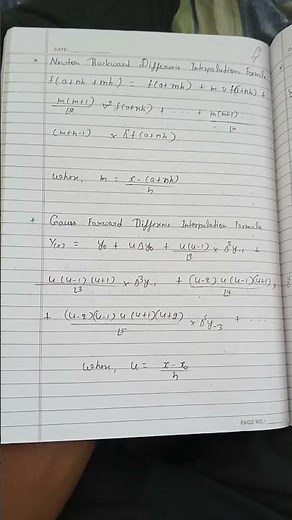 DATE:
* Newton Backward Difference Interpolation Formula
f(a+nh+mh) = f(a+nh) + m ∇ f(a+nh) +
m(m+1)/⌊2 ∇² f(a+nh) + ... + m(m+1)...
(m+n-1) × ∇ⁿf(a+nh)
where, m = x-(a+nh)/h
* Gauss Forward Difference Interpolation Formula
Y(x) = y₀ + uΔy₀ + u(u-1)/⌊2 × Δ²y₋₁ +
u(u-1)(u+1)/⌊3 × Δ³y₋₁ + (u-2)u(u-1)(u+1)/⌊4 ×
+ (u-2)(u-1)u(u+1)(u+2)/⌊5 × Δ⁵y₋₃ + ....
where, u = x-x₀/h
PAGE NO.: